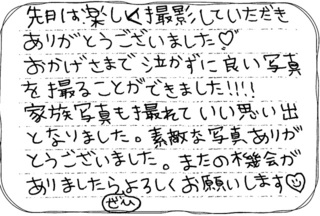 先日は楽しく撮影していただき
ありがとうございました♡
おかげさまで泣かずに良い写真
を撮ることができました!!!!
家族写真も撮れていい思い出
となりました。素敵な写真ありが
とうございました。またの機会が
ありましたらぜひよろしくお願いします☺